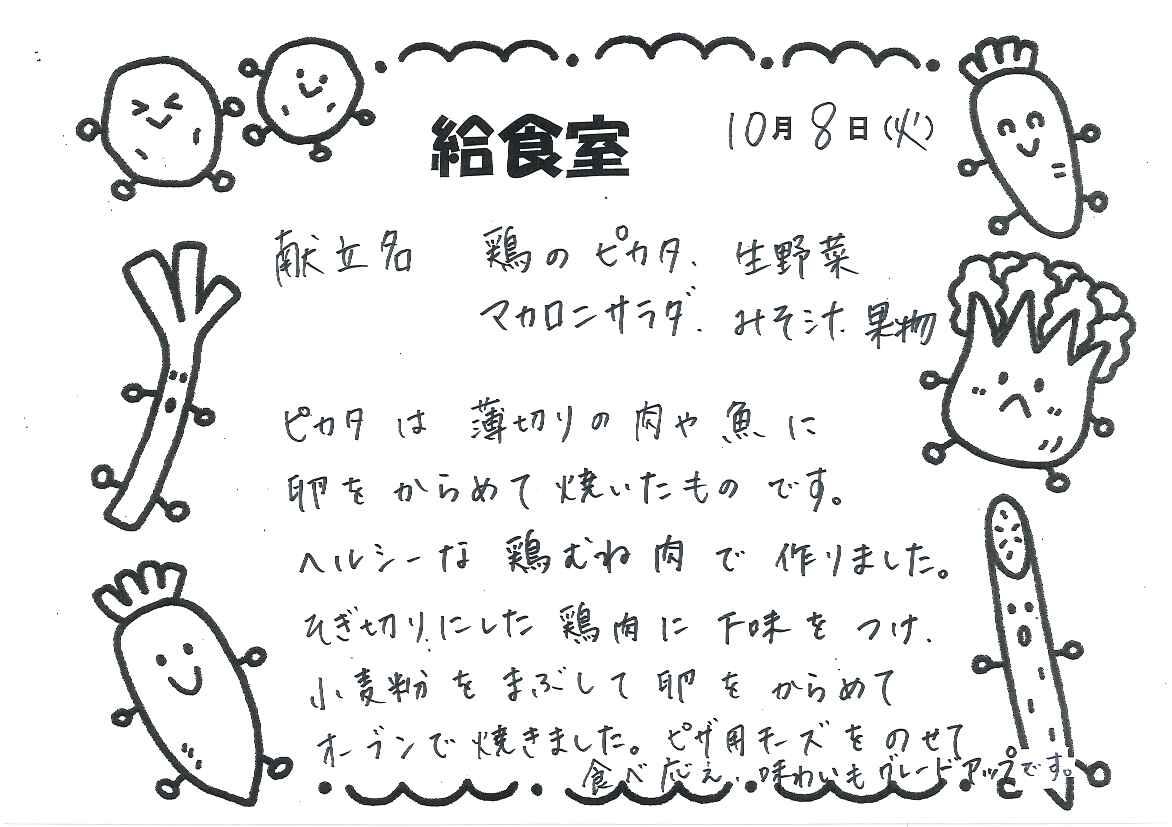 給食室
10月8日(火)
献立名 鶏のピカタ、生野菜
マカロニサラダ、みそ汁、果物
ピカタは薄切りの肉や魚に
卵をからめて焼いたものです。
ヘルシーな鶏むね肉で作りました。
そぎ切りにした鶏肉に下味をつけ、
小麦粉をまぶして卵をからめて
オーブンで焼きました。ピザ用チーズをのせて
食べ応え、味わいもグレードアップです。